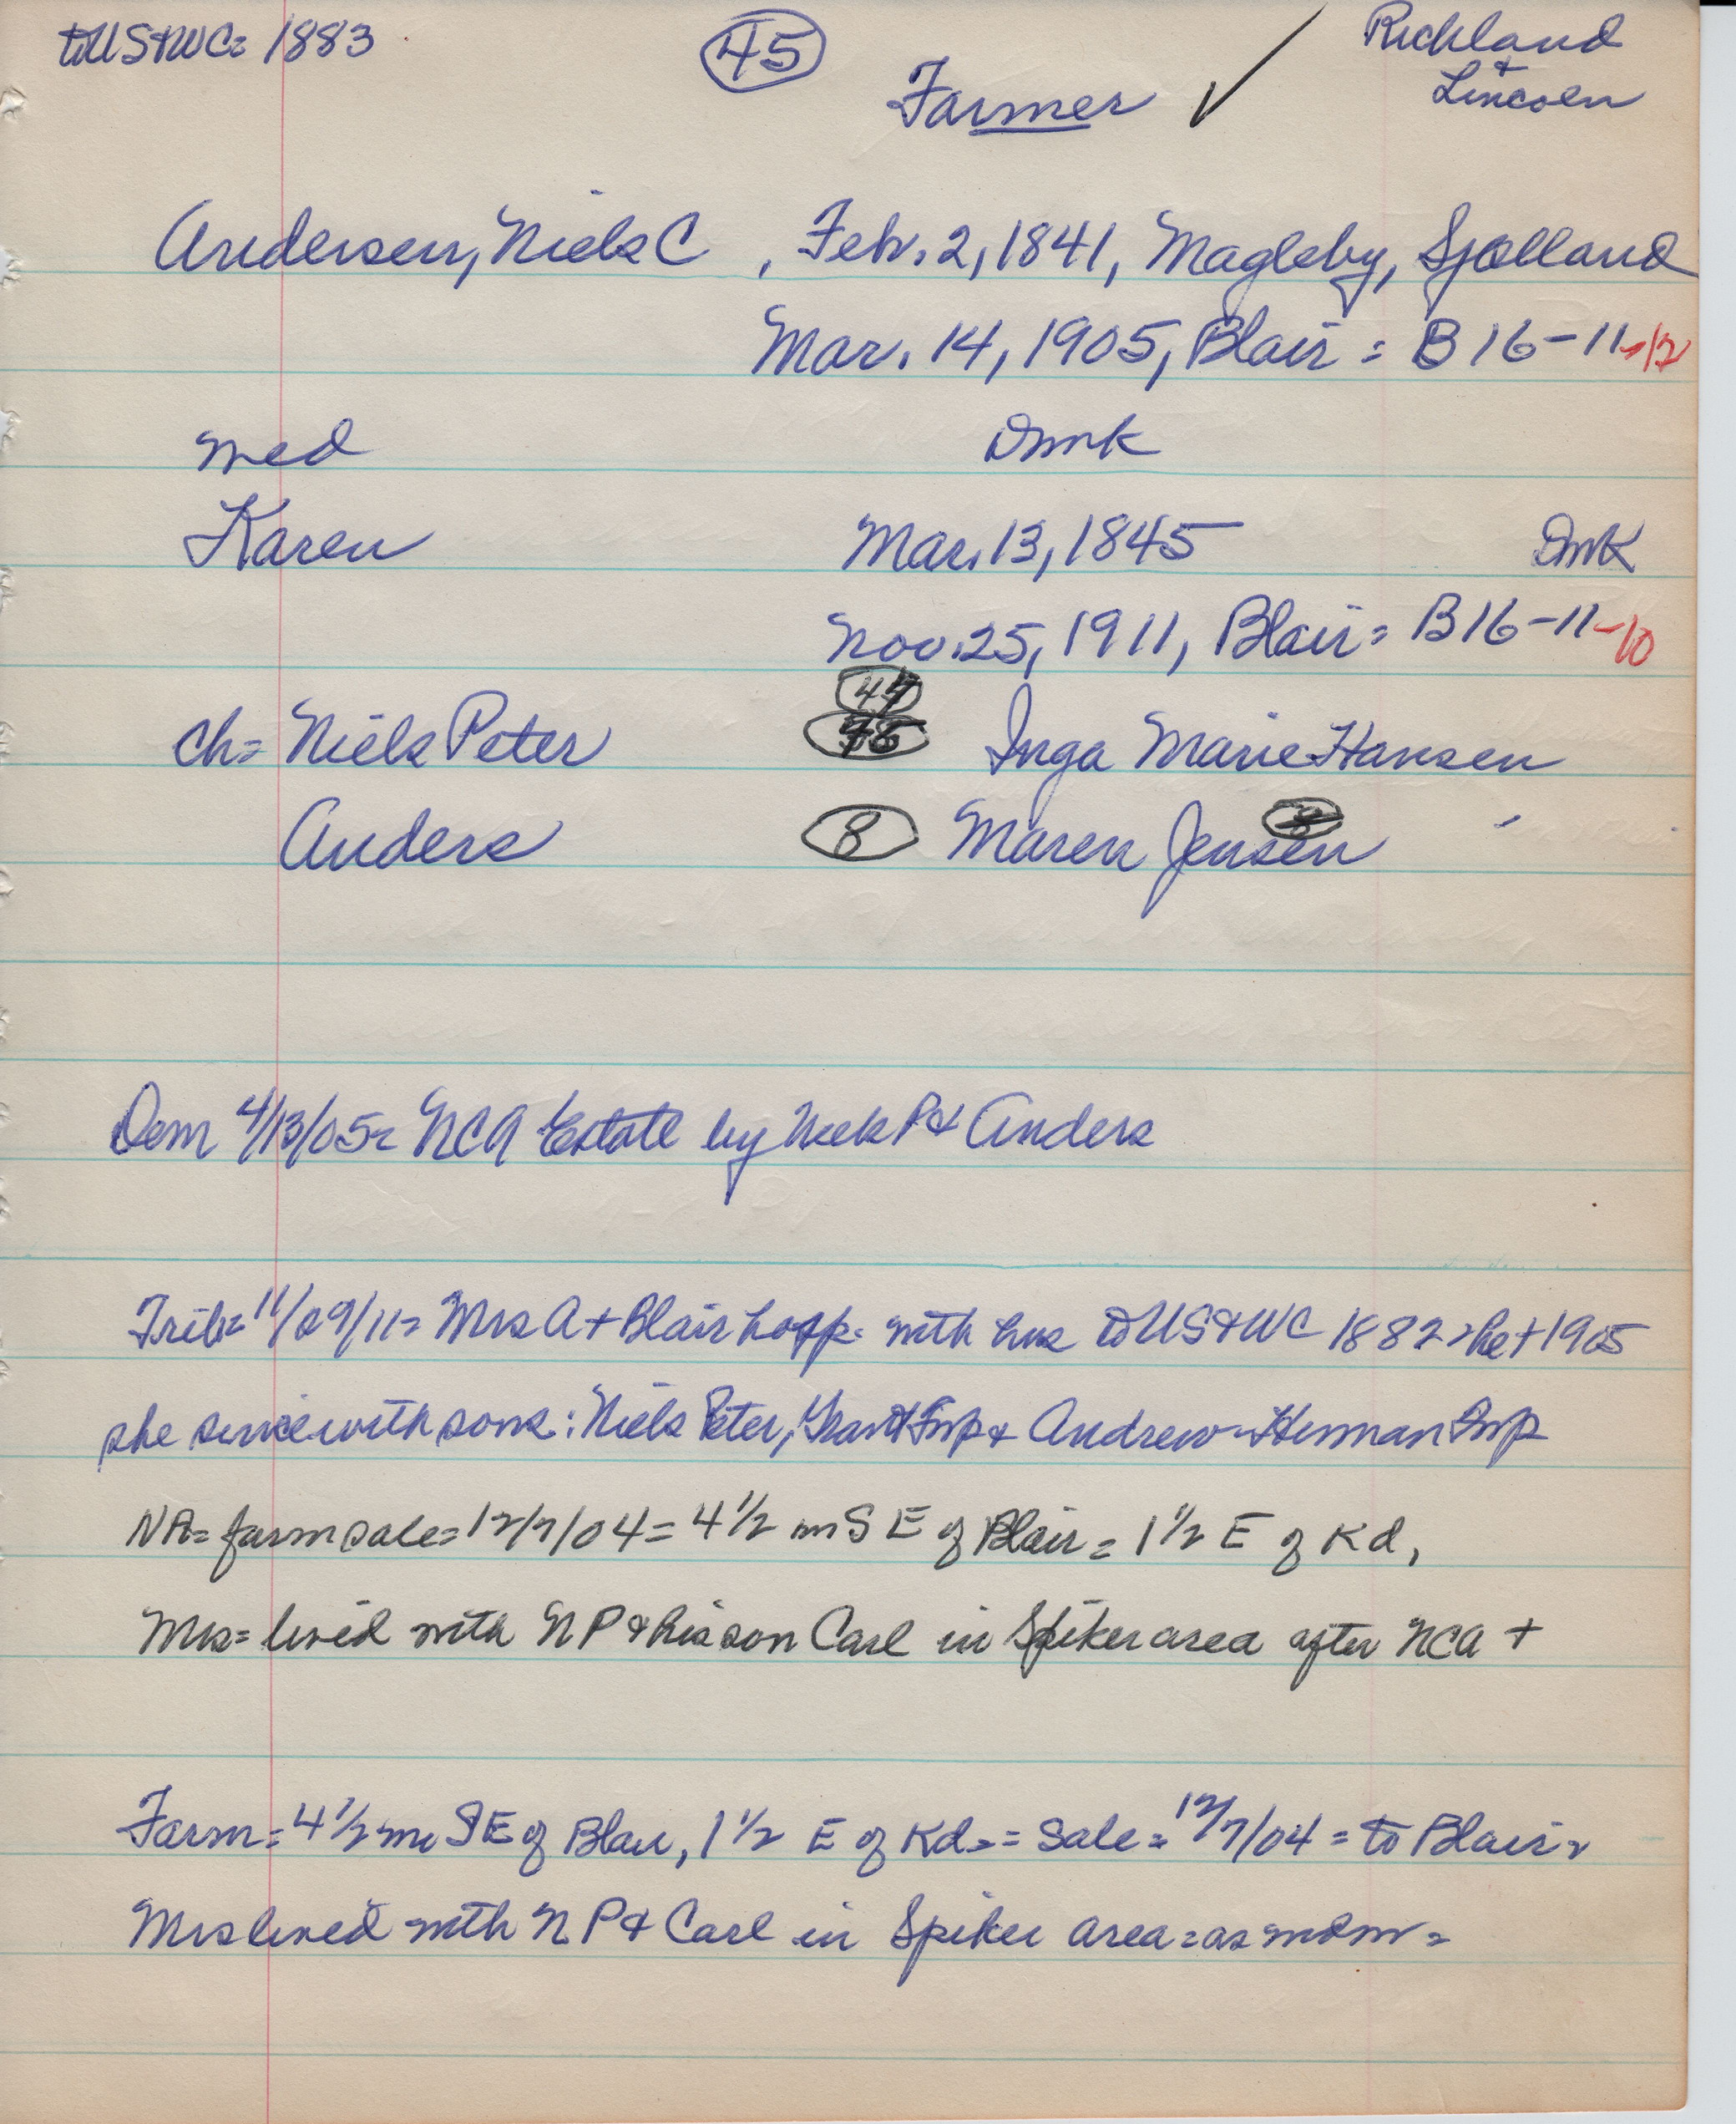 to US & WC = 1883
45
Richland
&
Lincoln
Farmer ✓
Andersen, Niels C , Feb. 2, 1841, Magleby, Sjælland
Mar. 14, 1905, Blair = B 16-11-12
med Dmk
Karen Mar. 13, 1845 Dmk
Nov. 25, 1911, Blair = B16-11-10
44
ch = Niels Peter Inga Marie Hansen
Anders 8 Maren Jensen
Dem 4/13/05 = NCA Estate by Niels P & Anders
Trib = 11/29/11 = Mrs A + Blair hosp. with hus to US & WC 1882 = he + 1905
she survived with sons: Niels Peter, Grant Twp & Andrew - Herman Twp
NA = farm sale = 12/7/04 = 4 1/2 m S E of Blair = 1 1/2 E of Kd,
Mrs = lived with N P & his son Carl in Spiker area after NCA +
Farm = 4 1/2 mi S E of Blair, 1 1/2 E of Kd = = Sale = 12/7/04 = to Blair =
Mrs lived with N P & Carl in Spiker area = as